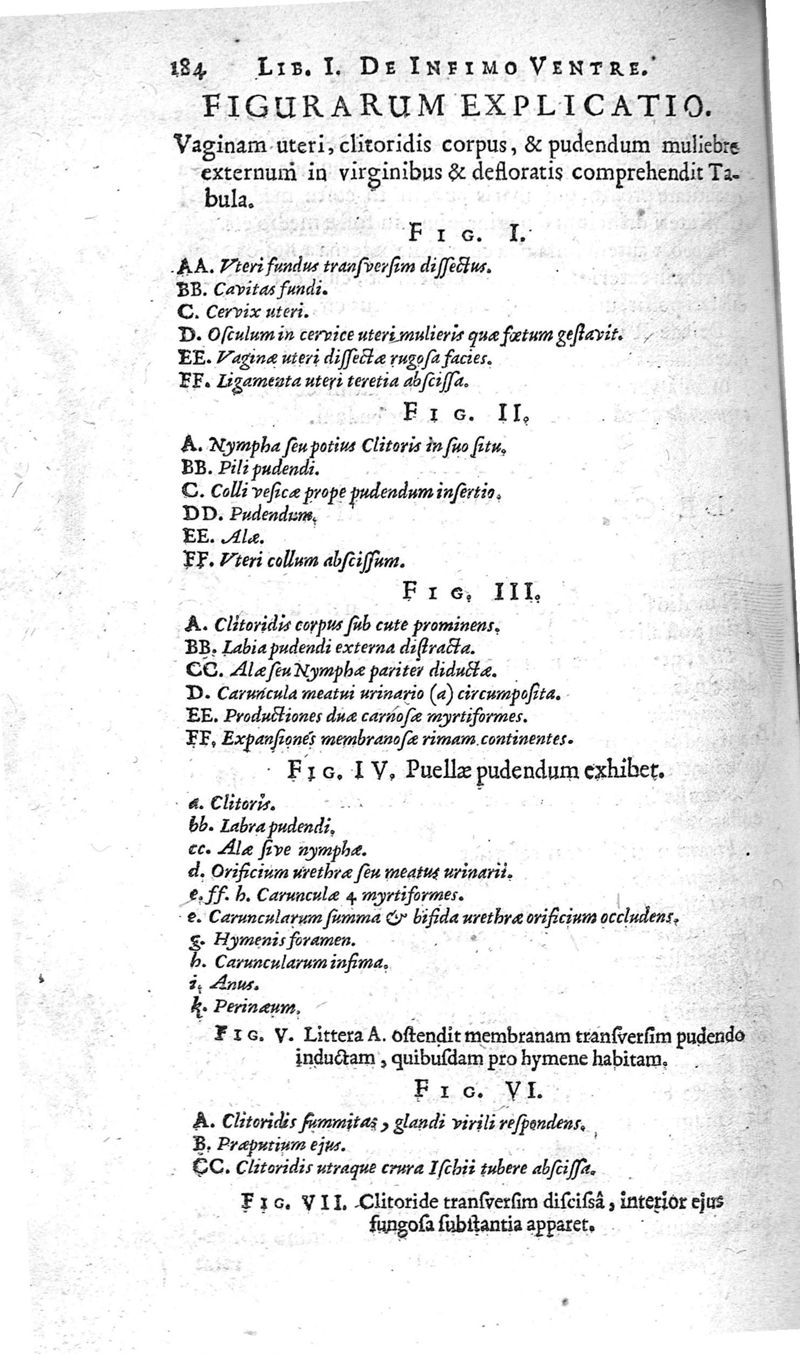 184 LIB. I. DE INFIMO VENTRE.
FIGURARUM EXPLICATIO.
Vaginam uteri, clitoridis corpus, & pudendum muliebre
externum in virginibus & defloratis comprehendit Ta-
bula.
FIG. I.
AA. Vteri fundus transversim dissectus.
BB. Cavitas fundi.
C. Cervix uteri.
D. Osculum in cervice uteri mulieris quæ fœtum gestavit.
EE. Vaginæ uteri dissectæ rugosa facies.
FF. Ligamenta uteri teretia abscissa.
FIG. II.
A. Nympha seu potius Clitoris in suo situ.
BB. Pili pudendi.
C. Colli vesicæ prope pudendum insertio.
DD. Pudendum.
EE. Alæ.
FF. Vteri collum abscissum.
FIG. III.
A. Clitoridis corpus sub cute prominens.
BB. Labia pudendi externa distracta.
CC. Alæ seu Nymphæ pariter diductæ.
D. Caruncula meatui urinario (a) circumposita.
EE. Productiones duæ carnosæ myrtiformes.
FF. Expansiones membranosæ rimam continentes.
FIG. IV. Puellæ pudendum exhibet.
a. Clitoris.
bb. Labra pudendi.
cc. Alæ sive nymphæ.
d. Orificium urethræ seu meatus urinarii.
e. ff. h. Carunculæ 4 myrtiformes.
e. Caruncularum summa & bifida urethræ orificium occludens.
g. Hymenis foramen.
h. Caruncularum infima.
i. Anus.
k. Perinæum.
FIG. V. Littera A. ostendit membranam transversim pudendo
inductam, quibusdam pro hymene habitam.
FIG. VI.
A. Clitoridis summitas, glandi virili respondens.
B. Præputium ejus.
CC. Clitoridis utraque crura Ischii tubere abscissa.
FIG. VII. Clitoride transversim discissâ, interior ejus
fungosa substantia apparet.